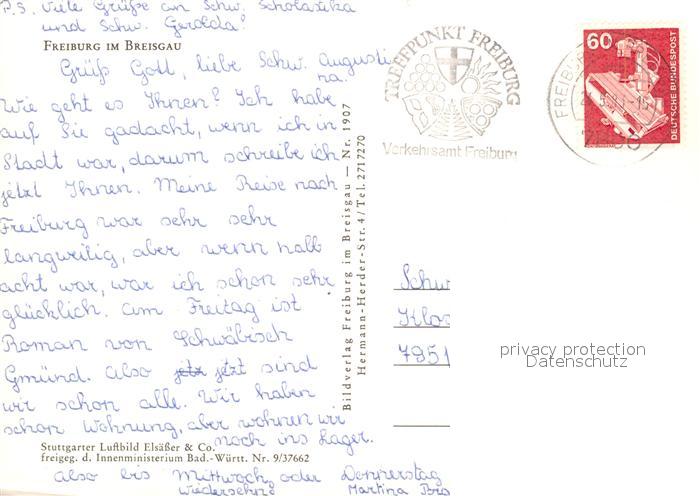 P.S. Viele Grüße an Schw. Scholastika
und Schw. Gerolda!
FREIBURG IM BREISGAU
Grüß Gott, liebe Schw. Augusti
na.
Wie geht es Ihnen? Ich habe
auf Sie gedacht, wenn ich in
Stadt war, darum schreibe ich
jetzt Ihnen. Meine Reise nach
Freiburg war sehr sehr
langweilig, aber wenn halb
acht war, war ich schon sehr
glücklich. Am Freitag ist
Roman von Schwäbisch
Gmünd. Also jetzt sind
wir schon alle. Wir haben
schon Wohnung, aber wohnen wir
noch ins Lager.
Stuttgarter Luftbild Elsäßer & Co.
freigeg. d. Innenministerium Bad.-Württ. Nr. 9/37662
Also bis Mittwoch oder Donnerstag
Wiedersehn?
Martina
Bildverlag Freiburg im Breisgau — Nr. 1907
Hermann-Herder-Str. 4 / Tel. 2717270
TREFFPUNKT FREIBURG
Verkehrsamt Freiburg
FREIBURG
60
DEUTSCHE BUNDESPOST
Schw
Klos
7951
privacy protection
Datenschutz